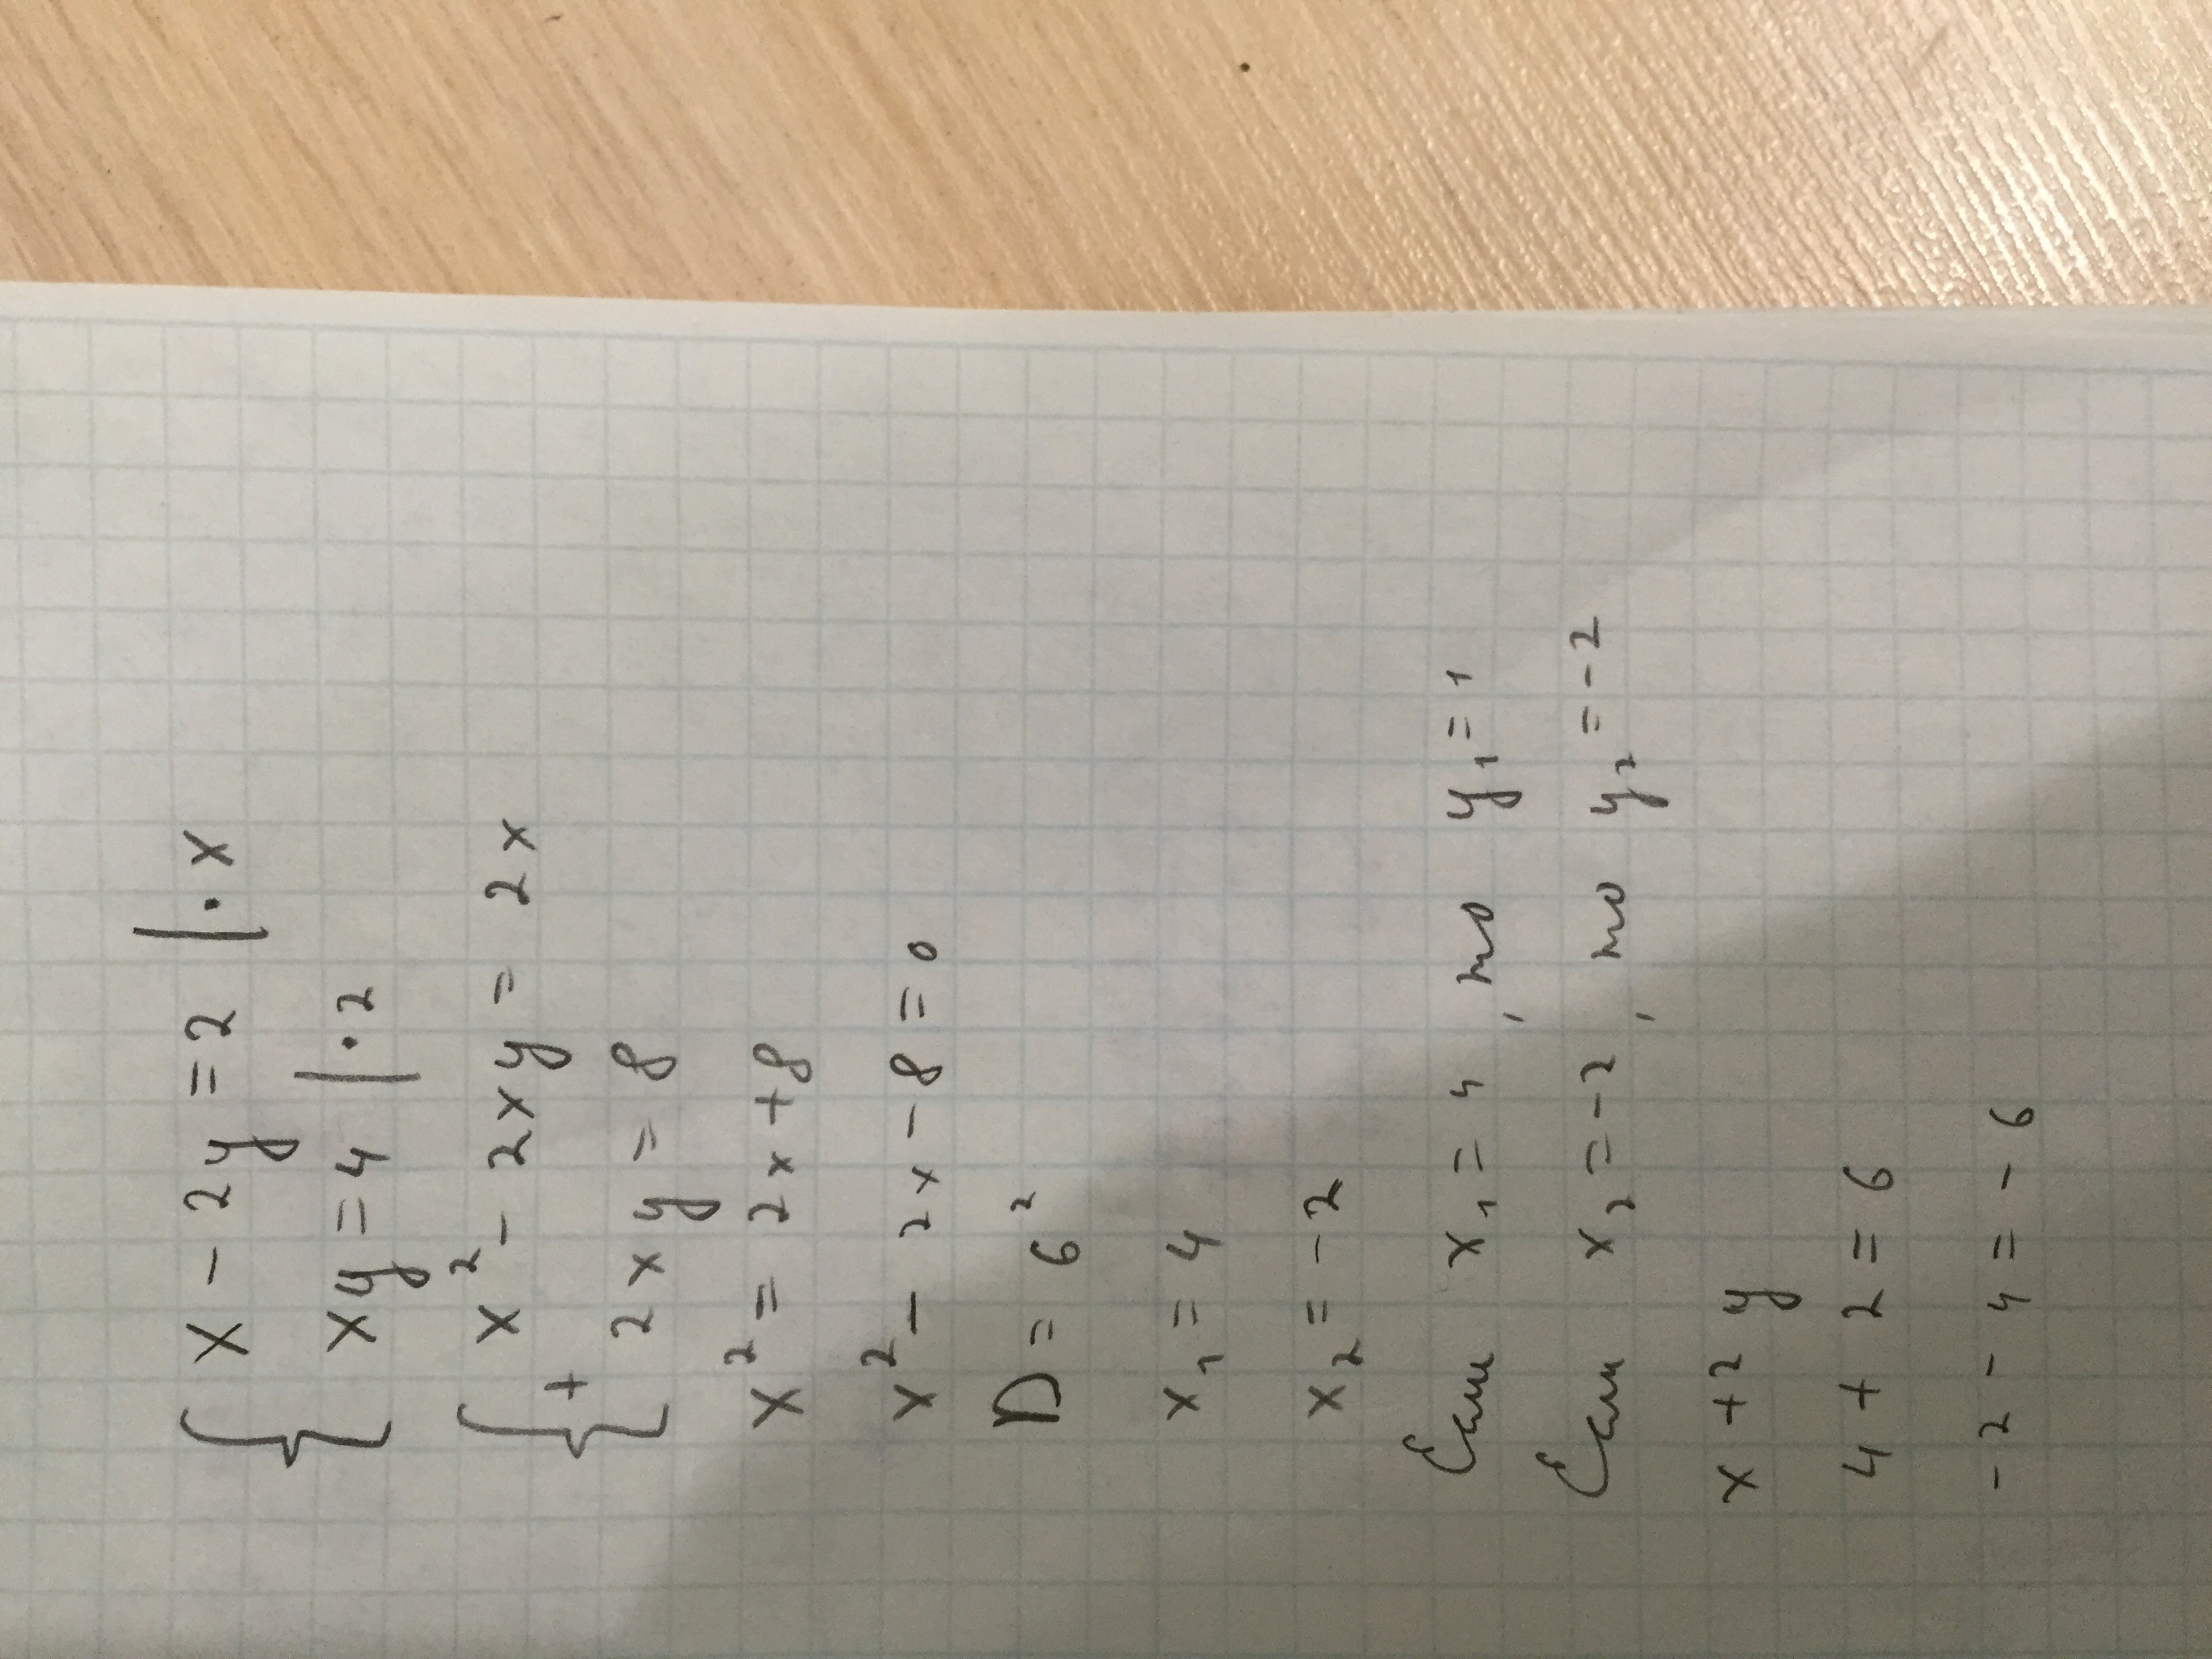 x - 2y = 2 | · x
xy = 4 | · 2
x² - 2xy = 2x
+
2xy = 8
x² = 2x + 8
x² - 2x - 8 = 0
D = 6²
x₁ = 4
x₂ = -2
Если x₁ = 4, то y₁ = 1
Если x₂ = -2, то y₂ = -2
x + 2y
4 + 2 = 6
-2 - 4 = -6